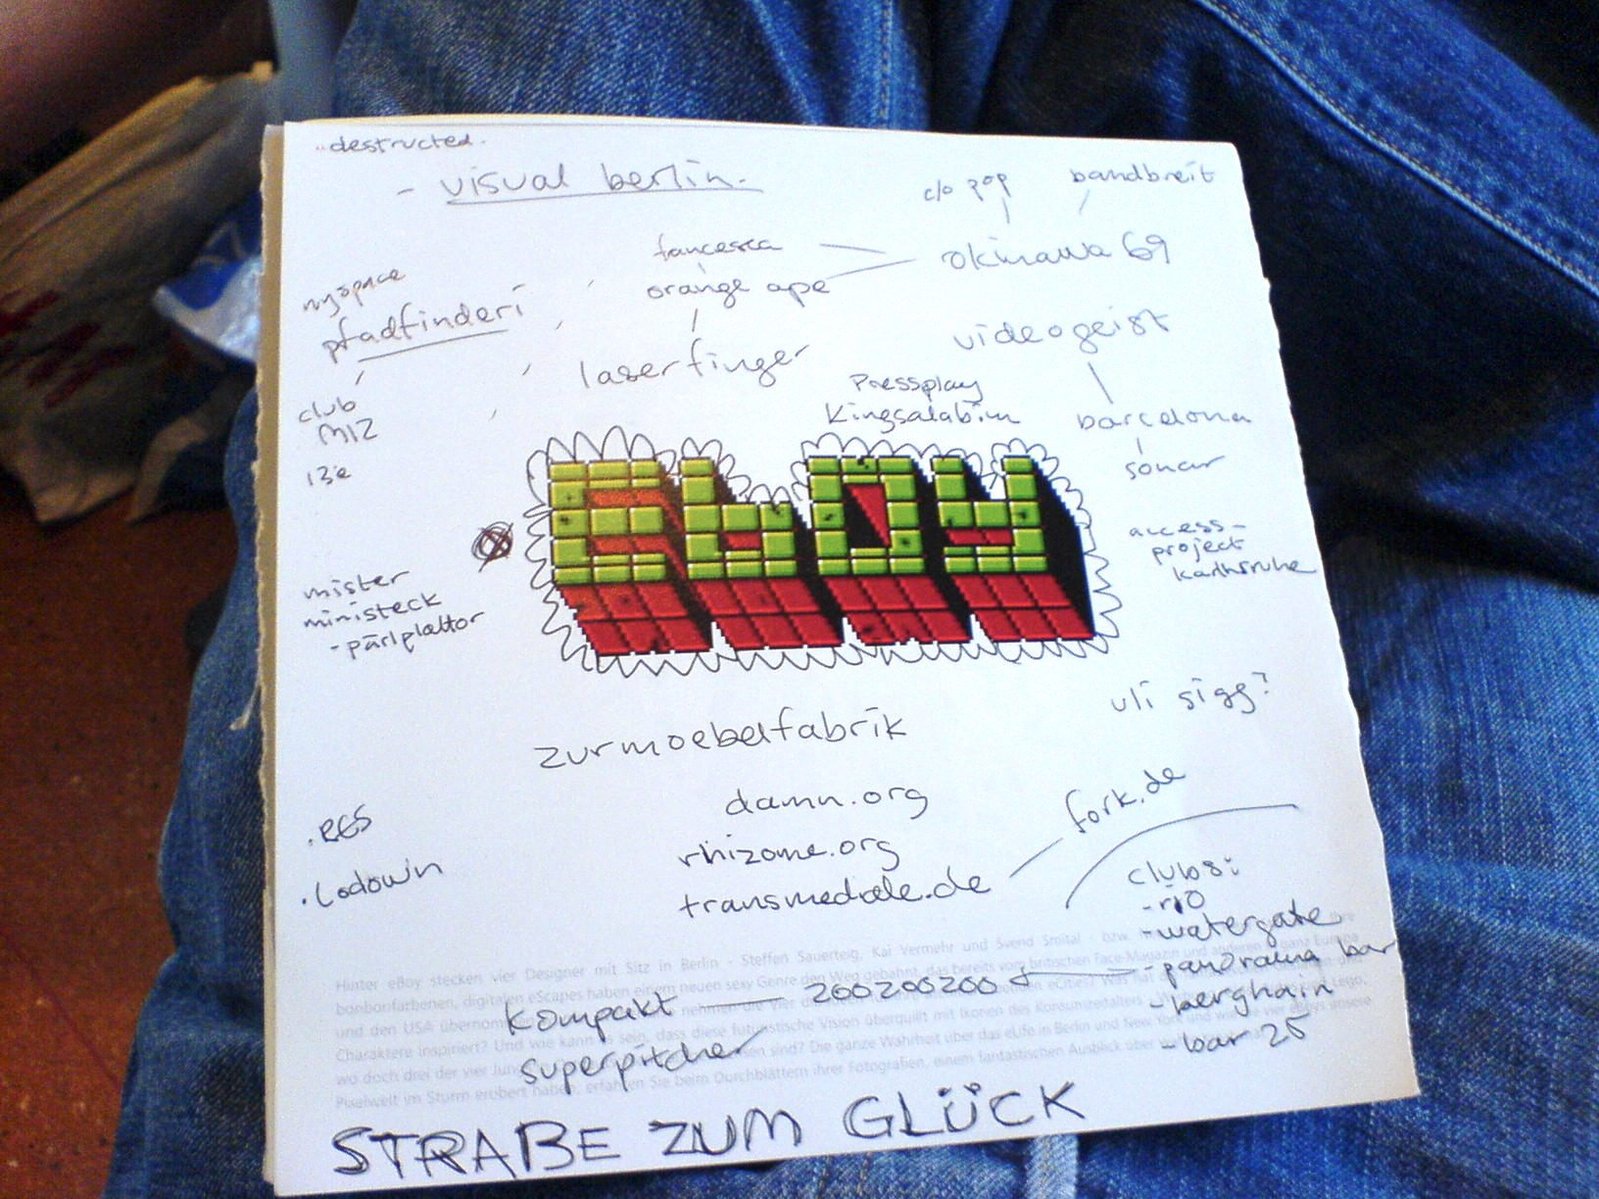 ..destructed.
- visual berlin.
c/o pop
bandbreit
francesca
okinawa 69
myspace
orange ape
pfadfinderi
videogeist
laserfinger
Pressplay
club
MIZ
Kingsalabim
barcelona
13e
sonar
eBOY
access-
project
Karlhsruhe
mister
ministeck
- pärlplattor
uli sigg?
zurmoebelfabrik
damn.org
fork.de
.RES
rhizome.org
.Lodown
transmediale.de
clubs:
- rio
- watergate
- panorama bar
- berghain
- bar 25
Hinter eBoy stecken vier Designer mit Sitz in Berlin - Steffen Sauerteig, Kai Vermehr und Svend Smital - bzw.
bonbonfarbenen, digitalen eScapes haben einem neuen sexy Genre den Weg gebahnt, das bereits vom britischen Face-Magazin und anderen
und den USA übernommen
kompakt — 200200200
Charaktere inspiriert? Und wie kann es sein, dass diese futuristische Vision überquillt mit Ikonen des Konsumzeitalters
superpitcher
wo doch drei der vier sind? Die ganze Wahrheit über das eLife in Berlin und New York und
Pixelwelt im Sturm erobert haben, erfahren Sie beim Durchblättern ihrer Fotografien, einem fantastischen Ausblick über
STRAßE ZUM GLÜCK